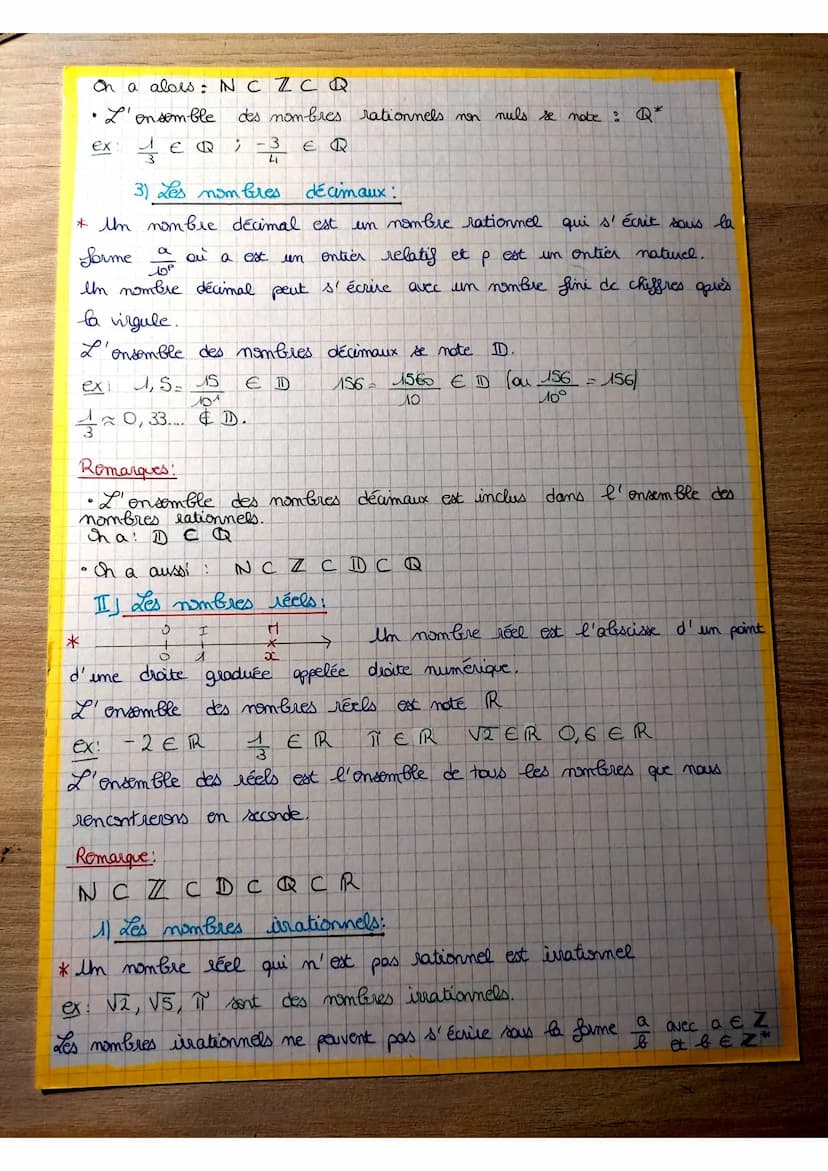 On a alors : N ⊂ Z ⊂ ℚ
• L'ensemble des nombres rationnels non nuls se note : ℚ*
ex : 1/3 ∈ ℚ ; -3/4 ∈ ℚ
3) Les nombres décimaux :
* Un nombre décimal est un nombre rationnel qui s'écrit sous la
forme a/10^p où a est un entier relatif et p est un entier naturel.
Un nombre décimal peut s'écrire avec un nombre fini de chiffres après
la virgule.
L'ensemble des nombres décimaux se note ID.
ex : 1,5 = 15/10¹ ∈ ID 156 = 1560/10 ∈ ID (ou 156/10⁰ = 156)
1/3 ≈ 0,33.... ∉ ID.
Remarques :
• L'ensemble des nombres décimaux est inclus dans l'ensemble des
nombres rationnels.
On a : ID ⊂ ℚ
• On a aussi : N ⊂ Z ⊂ ID ⊂ ℚ
II) Les nombres réels :
O I M
* 0 1 x Un nombre réel est l'abscisse d'un point
d'une droite graduée appelée droite numérique.
L'ensemble des nombres réels est noté ℝ
ex : -2 ∈ ℝ 1/3 ∈ ℝ π ∈ ℝ √2 ∈ ℝ 0,6 ∈ ℝ
L'ensemble des réels est l'ensemble de tous les nombres que nous
rencontrerons en seconde.
Remarque :
N ⊂ ℤ ⊂ ID ⊂ ℚ ⊂ ℝ
1) Les nombres irrationnels :
* Un nombre réel qui n'est pas rationnel est irrationnel
ex : √2, √5, π sont des nombres irrationnels.
Les nombres irrationnels ne peuvent pas s'écrire sous la forme a/b avec a ∈ Z
et b ∈ Z*